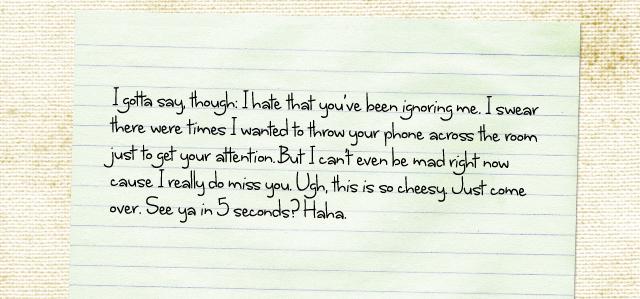 I gotta say, though: I hate that you've been ignoring me. I swear
there were times I wanted to throw your phone across the room
just to get your attention. But I can't even be mad right now
cause I really do miss you. Ugh, this is so cheesy. Just come
over. See ya in 5 seconds? Haha.